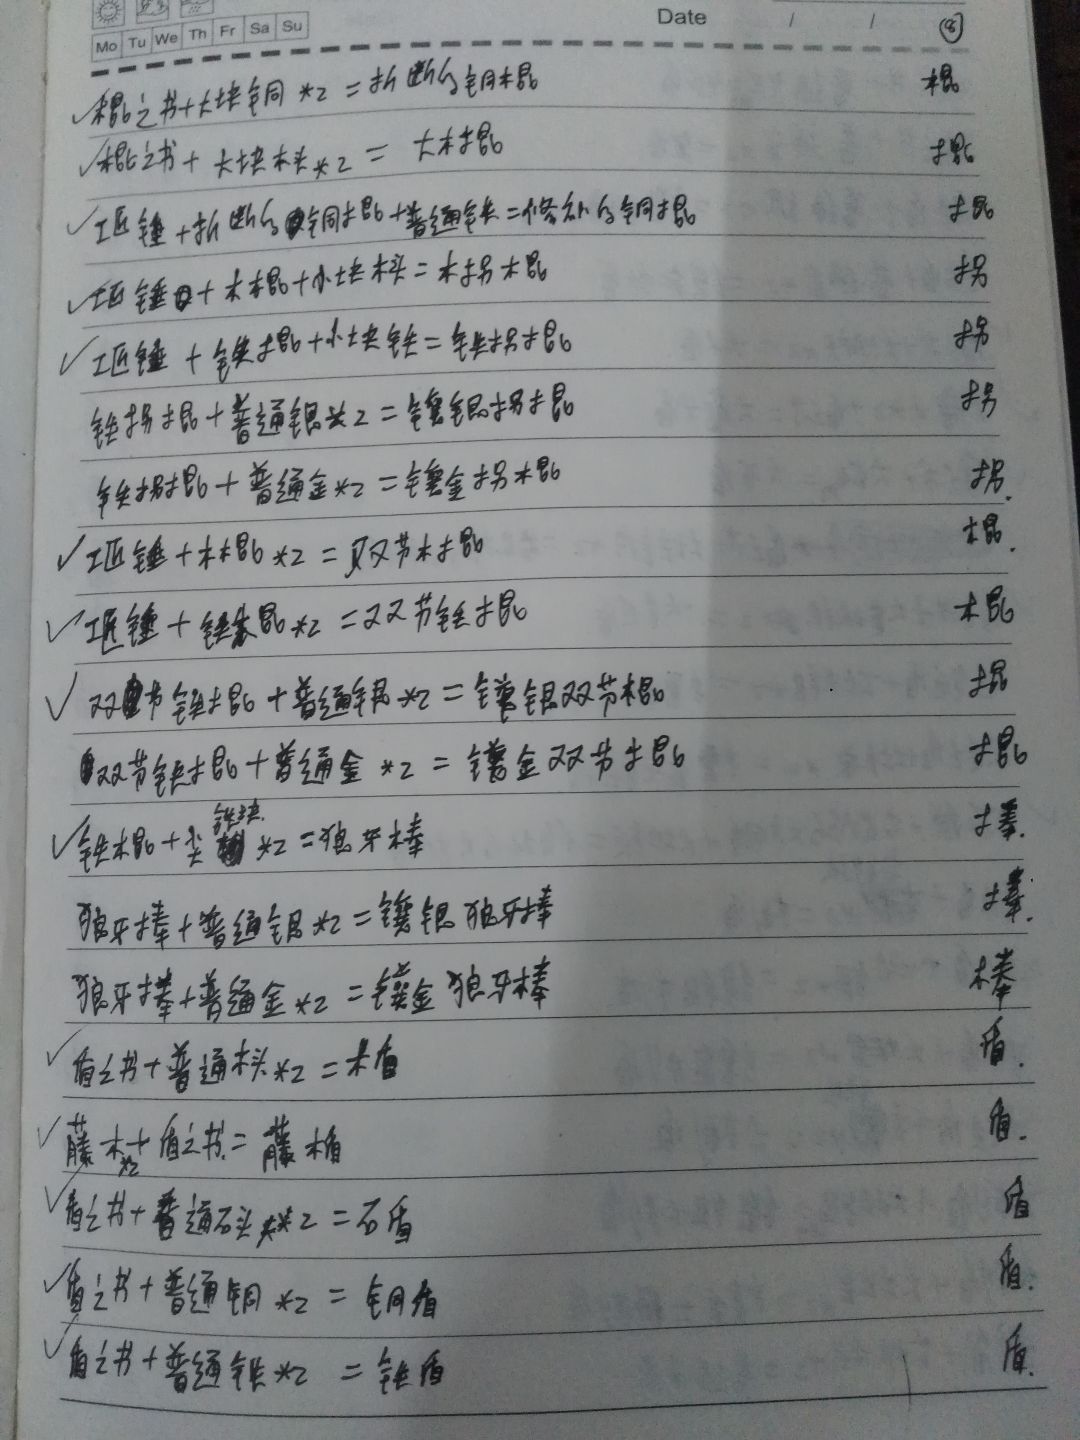 Mo Tu We Th Fr Sa Su Date / / ⑧
✓棍之书+大块铜*2=折断的铜棍 棍
✓棍之书+大块木头*2=大木棍 棍
✓工匠锤+折断的铜棍+普通铁=修补的铜棍 棍
✓工匠锤+木棍+小块木头=木拐木棍 拐
✓工匠锤+铁棍+小块铁=铁拐棍 拐
铁拐棍+普通银*2=镶银拐棍 拐
铁拐棍+普通金*2=镶金拐棍 拐.
✓工匠锤+木棍*2=双节木棍 棍.
✓工匠锤+铁棍*2=双节铁棍 棍
✓双节铁棍+普通银*2=镶银双节棍 棍
双节铁棍+普通金*2=镶金双节棍 棍
✓铁棍+尖铁块*2=狼牙棒 棒.
狼牙棒+普通银*2=镶银狼牙棒 棒.
狼牙棒+普通金*2=镶金狼牙棒 棒
✓盾之书+普通木头*2=木盾 盾.
✓藤木*2+盾之书=藤木盾 盾.
✓盾之书+普通石头*2=石盾 盾
✓盾之书+普通铜*2=铜盾 盾.
✓盾之书+普通铁*2=铁盾 盾.